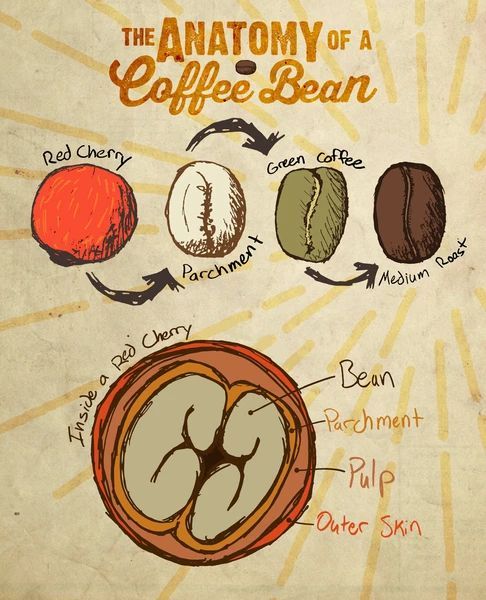 THE ANATOMY OF A
Coffee Bean
Red Cherry
Parchment
Green Coffee
Medium Roast
Inside a Red Cherry
Bean
Parchment
Pulp
Outer Skin